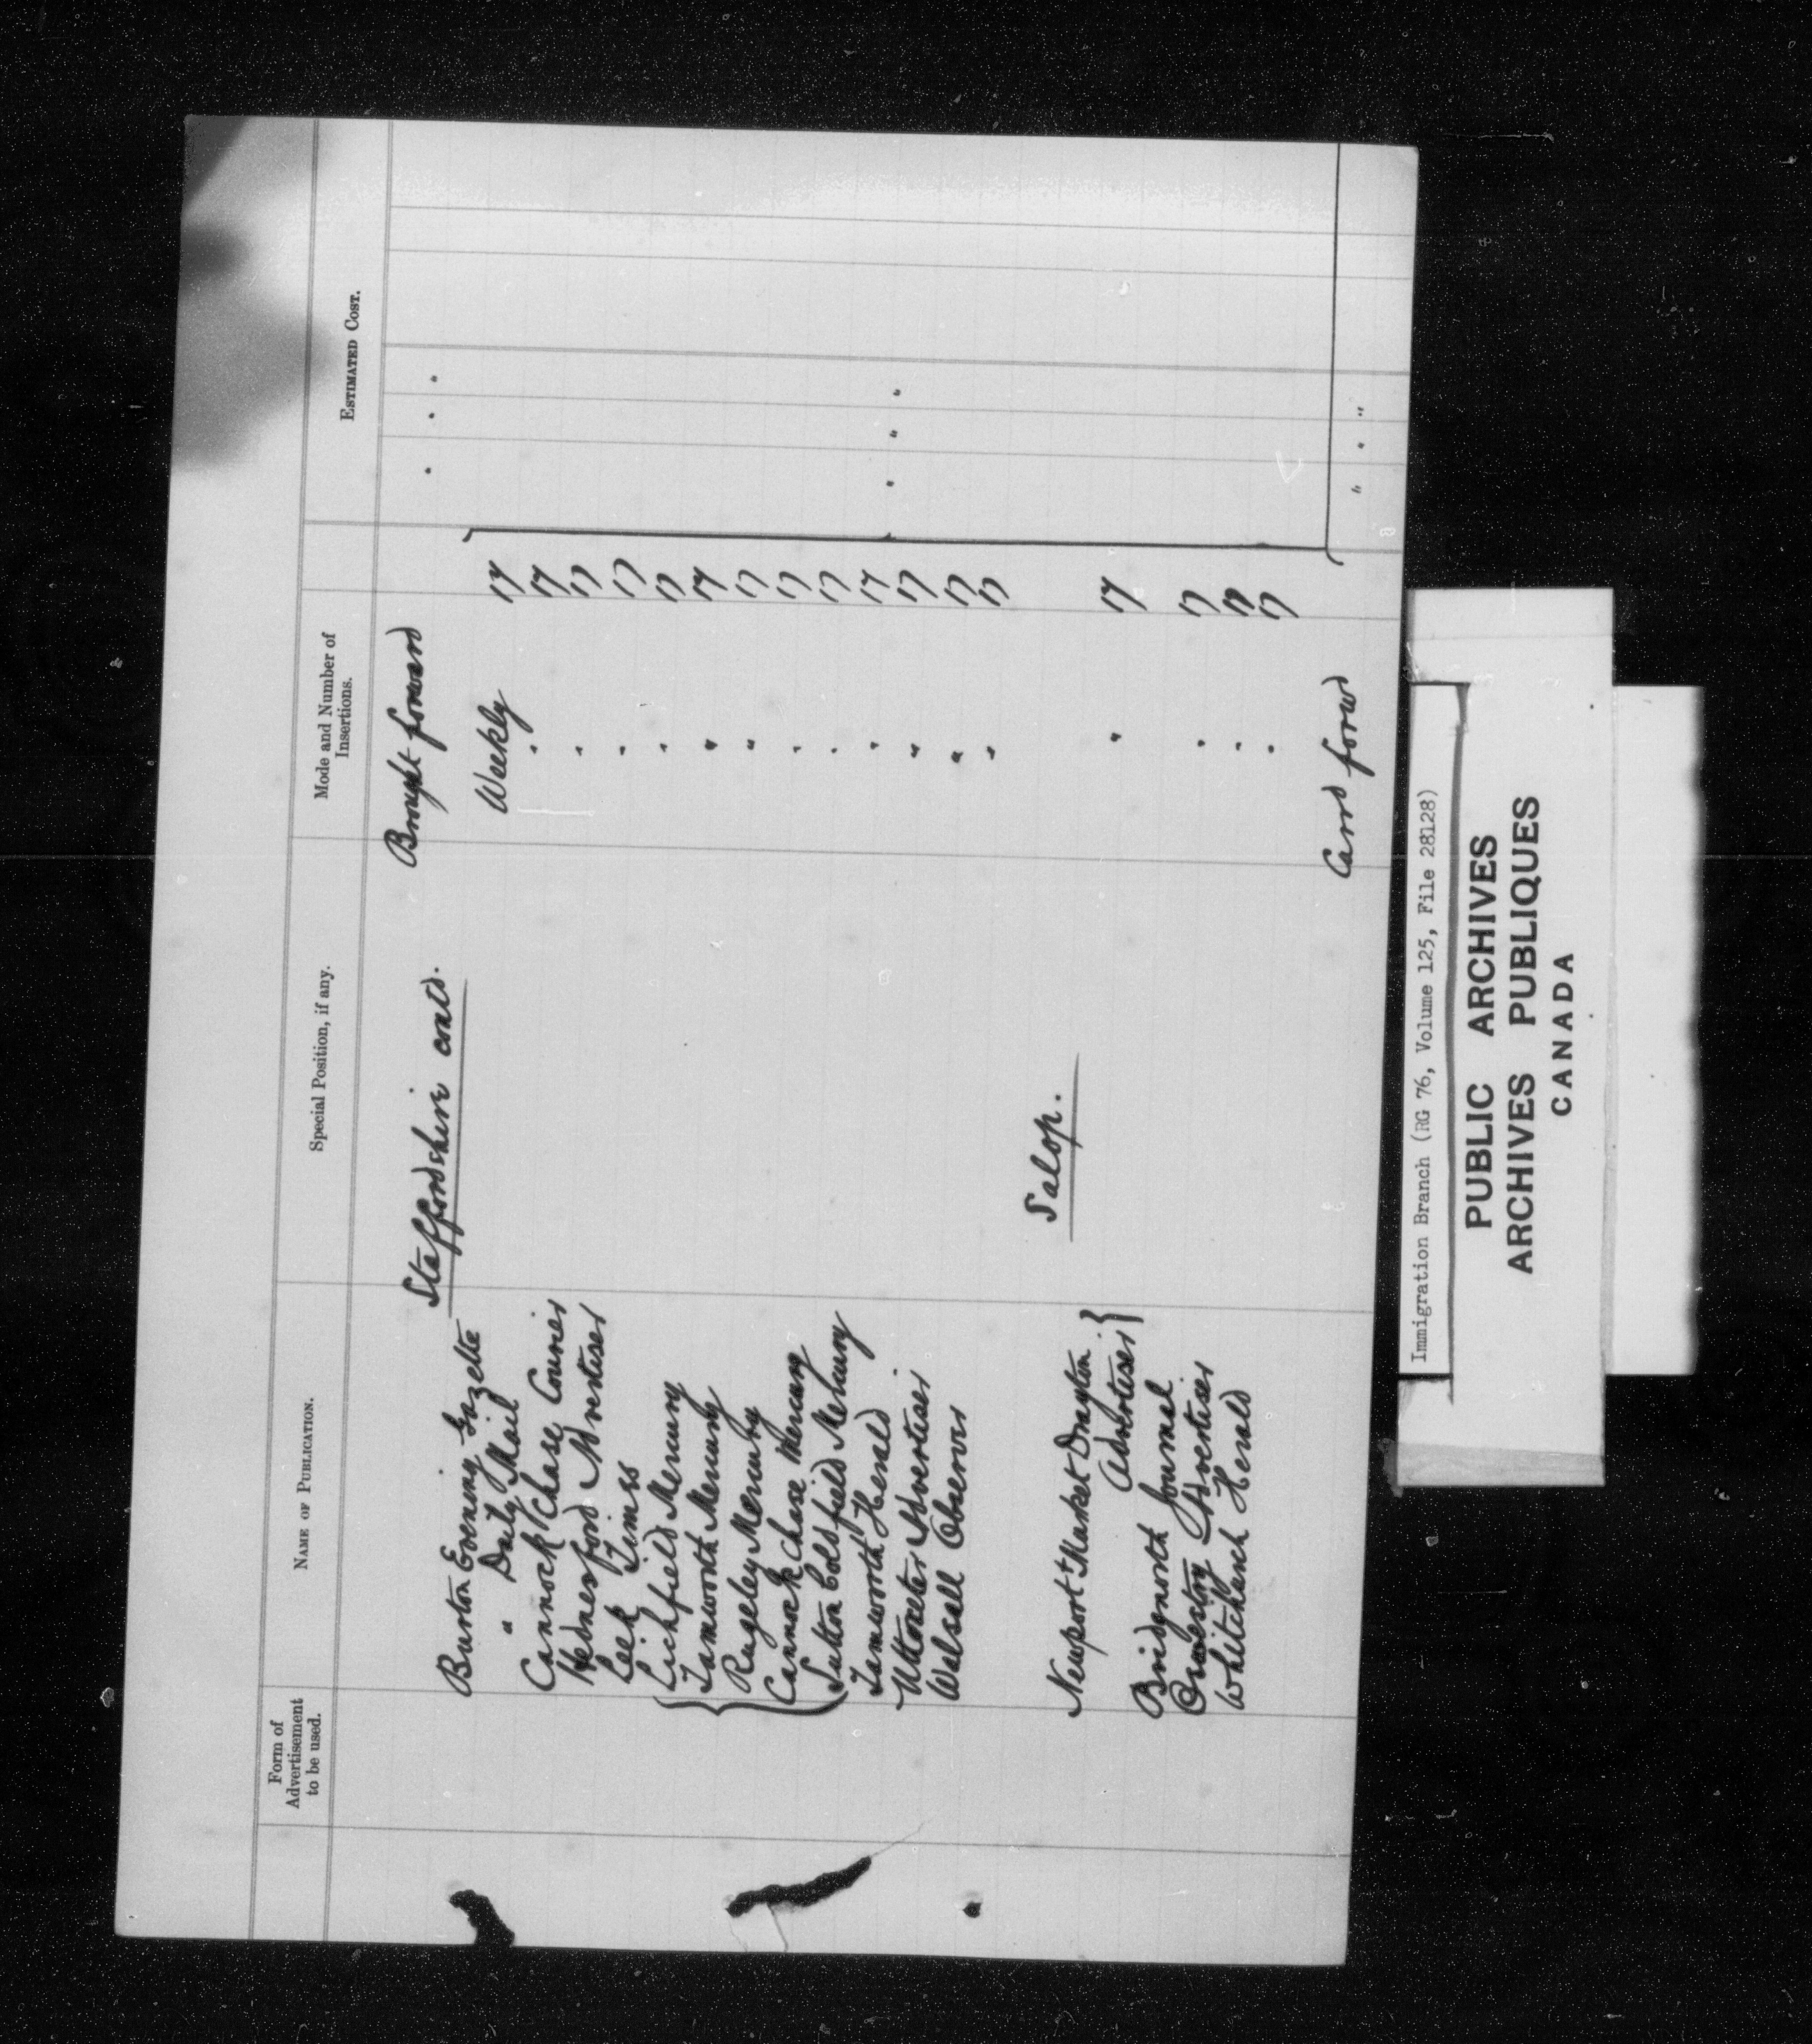 Form of Advertisement to be used.
NAME OF PUBLICATION.
Special Position, if any.
Mode and Number of Insertions.
ESTIMATED COST.
Brought forward " " "
Staffordshire contd.
Burton Evening Gazette Weekly 17
" Daily Mail " 17
Cannock Chase Courier " 17
Hednesford Advertiser " 17
Leek Times " 17
Lichfield Mercury " 17
Tamworth Mercury " 17
Rugeley Mercury " 17
Cannock Chase Mercury " 17
Sutton Coldfield Mercury " 17
Tamworth Herald " 17
Uttoxeter Advertiser " 17
Walsall Observer " 17
" " "
Salop.
Newport & Market Drayton
Advertiser } " 17
Bridgnorth Journal " 17
Oswestry Advertiser " 17
Whitchurch Herald " 17
Carrd forwd " " "
Immigration Branch (RG 76, Volume 125, File 28128)
PUBLIC ARCHIVES
ARCHIVES PUBLIQUES
CANADA